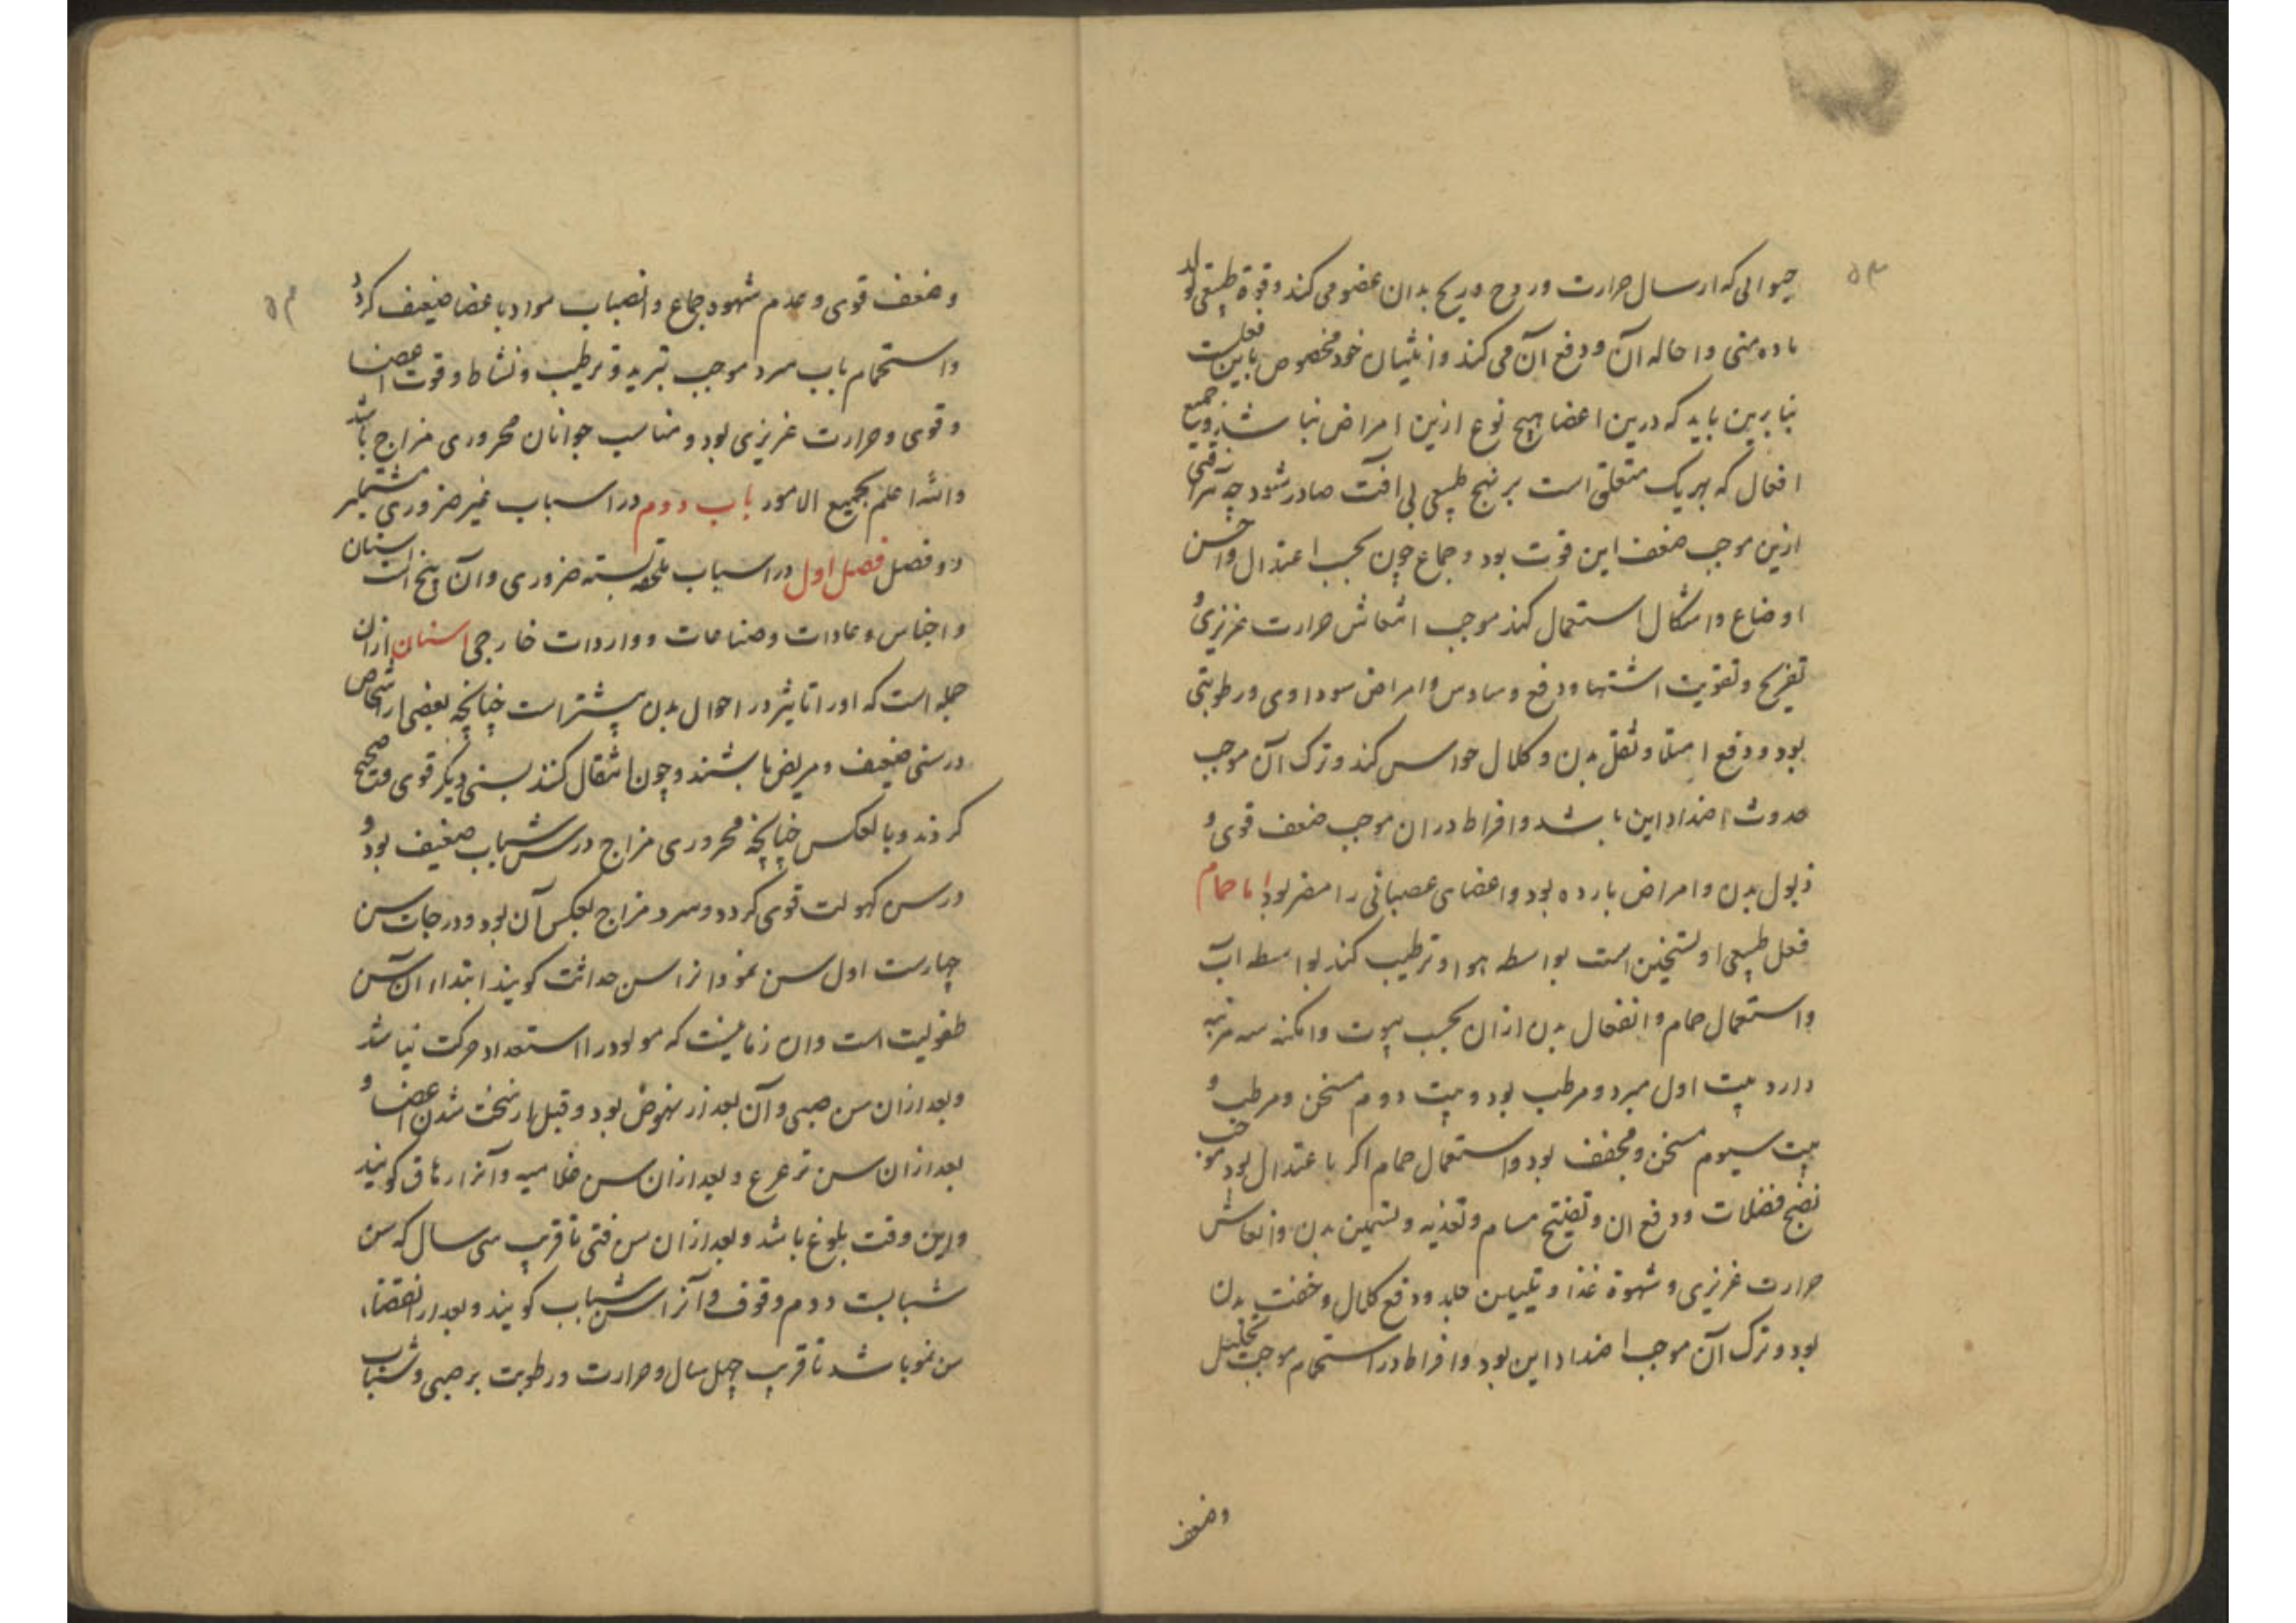 ۵۳
حیوانی که ارسال حرارت و روح و ریح بدان عضو می کند و قوة طبیعی که تولد
ماده منی و احاله آن و دفع آن می کند و انثیان خود مخصوص باین فعلست
بنابرین باید که درین اعضا هیچ نوع ازین امراض نباشد و جمیع
افعال که بهریک متعلق است بر نهج طبیعی بی آفت صادر شود چه هر آفتی
ازین موجب ضعف این قوت بود و جماع چون بحسب اعتدال و احسن
اوضاع و اشکال استعمال کنند موجب انتعاش حرارت غریزی و
تفریح و تقویت اشتها و دفع وساوس و امراض سوداوی و رطوبتی
بود و دفع امتلا و ثقل بدن و کلال حواس کند و ترک آن موجب
حدوث اضداد این باشد و افراط در ان موجب ضعف قوی و
ذبول بدن و امراض بارده بود و اعضای عصبانی را مضر بود اما حمام
فعل طبیعی او تسخین است بواسطه هوا و ترطیب کند بواسطه آب
و استعمال حمام و انفعال بدن ازان بحسب بیوت و امکنه سه مرتبه
دارد بیت اول مبرد و مرطب بود و بیت دوم مسخن و مرطب و
بیت سیوم مسخن و مجفف بود و استعمال حمام اکر باعتدال بود موجب
نضج فضلات و دفع ان و تفتیح مسام و تغذیه و تسمین بدن و انتعاش
حرارت غریزی و شهوة غذا و تلیین جلد و دفع کلال و خفت بدن
بود و ترک آن موجب اضداد این بود و افراط در استحمام موجب تحلیل
وضعف
۵۴
وضعف قوی و عدم شهوة جماع و انصباب مواد با عضا ضعیف کردد
و استحمام باب سرد موجب تبرید و ترطیب و نشاط و قوت اعضا
و قوی و حرارت غریزی بود و مناسب جوانان محروری مزاج باشد
والله اعلم بجمیع الامور باب دوم در اسباب غیر ضروری مشتمل بر
دو فصل فصل اول در اسباب ملحقه بسته ضروری و آن پنج است اسنان
و اجناس و عادات و صناعات و واردات خارجی اسنان ازان
جمله است که اورا تاثیر در احوال بدن بیشتر است چنانچه بعضی از اشخاص
در سنی ضعیف و مریض باشند و چون انتقال کنند بسنی دیکر قوی و صحیح
کردند و بالعکس چنانچه محروری مزاج در سن شباب ضعیف بود و
در سن کهولت قوی کردد و سرد مزاج بعکس آن بود و درجات سن
چهارست اول سن نمو و انرا سن حداثت کویند ابتداء آن سن
طفولیت است و ان زمانیست که مولود را استعداد حرکت نباشد
و بعد ازان سن صبی و آن بعد از نهوض بود و قبل از سخت شدن اعضا و
بعد ازان سن ترعرع و بعد ازان سن غلامیه و آنرا رهاق کویند
و این وقت بلوغ باشد و بعد ازان سن فتی تا قریب سی سال که سن
شبابست دوم وقوف و آنرا سن شباب کویند و بعد از انقضاء
سن نمو باشد تا قریب چهل سال و حرارت و رطوبت بر صبی و شباب